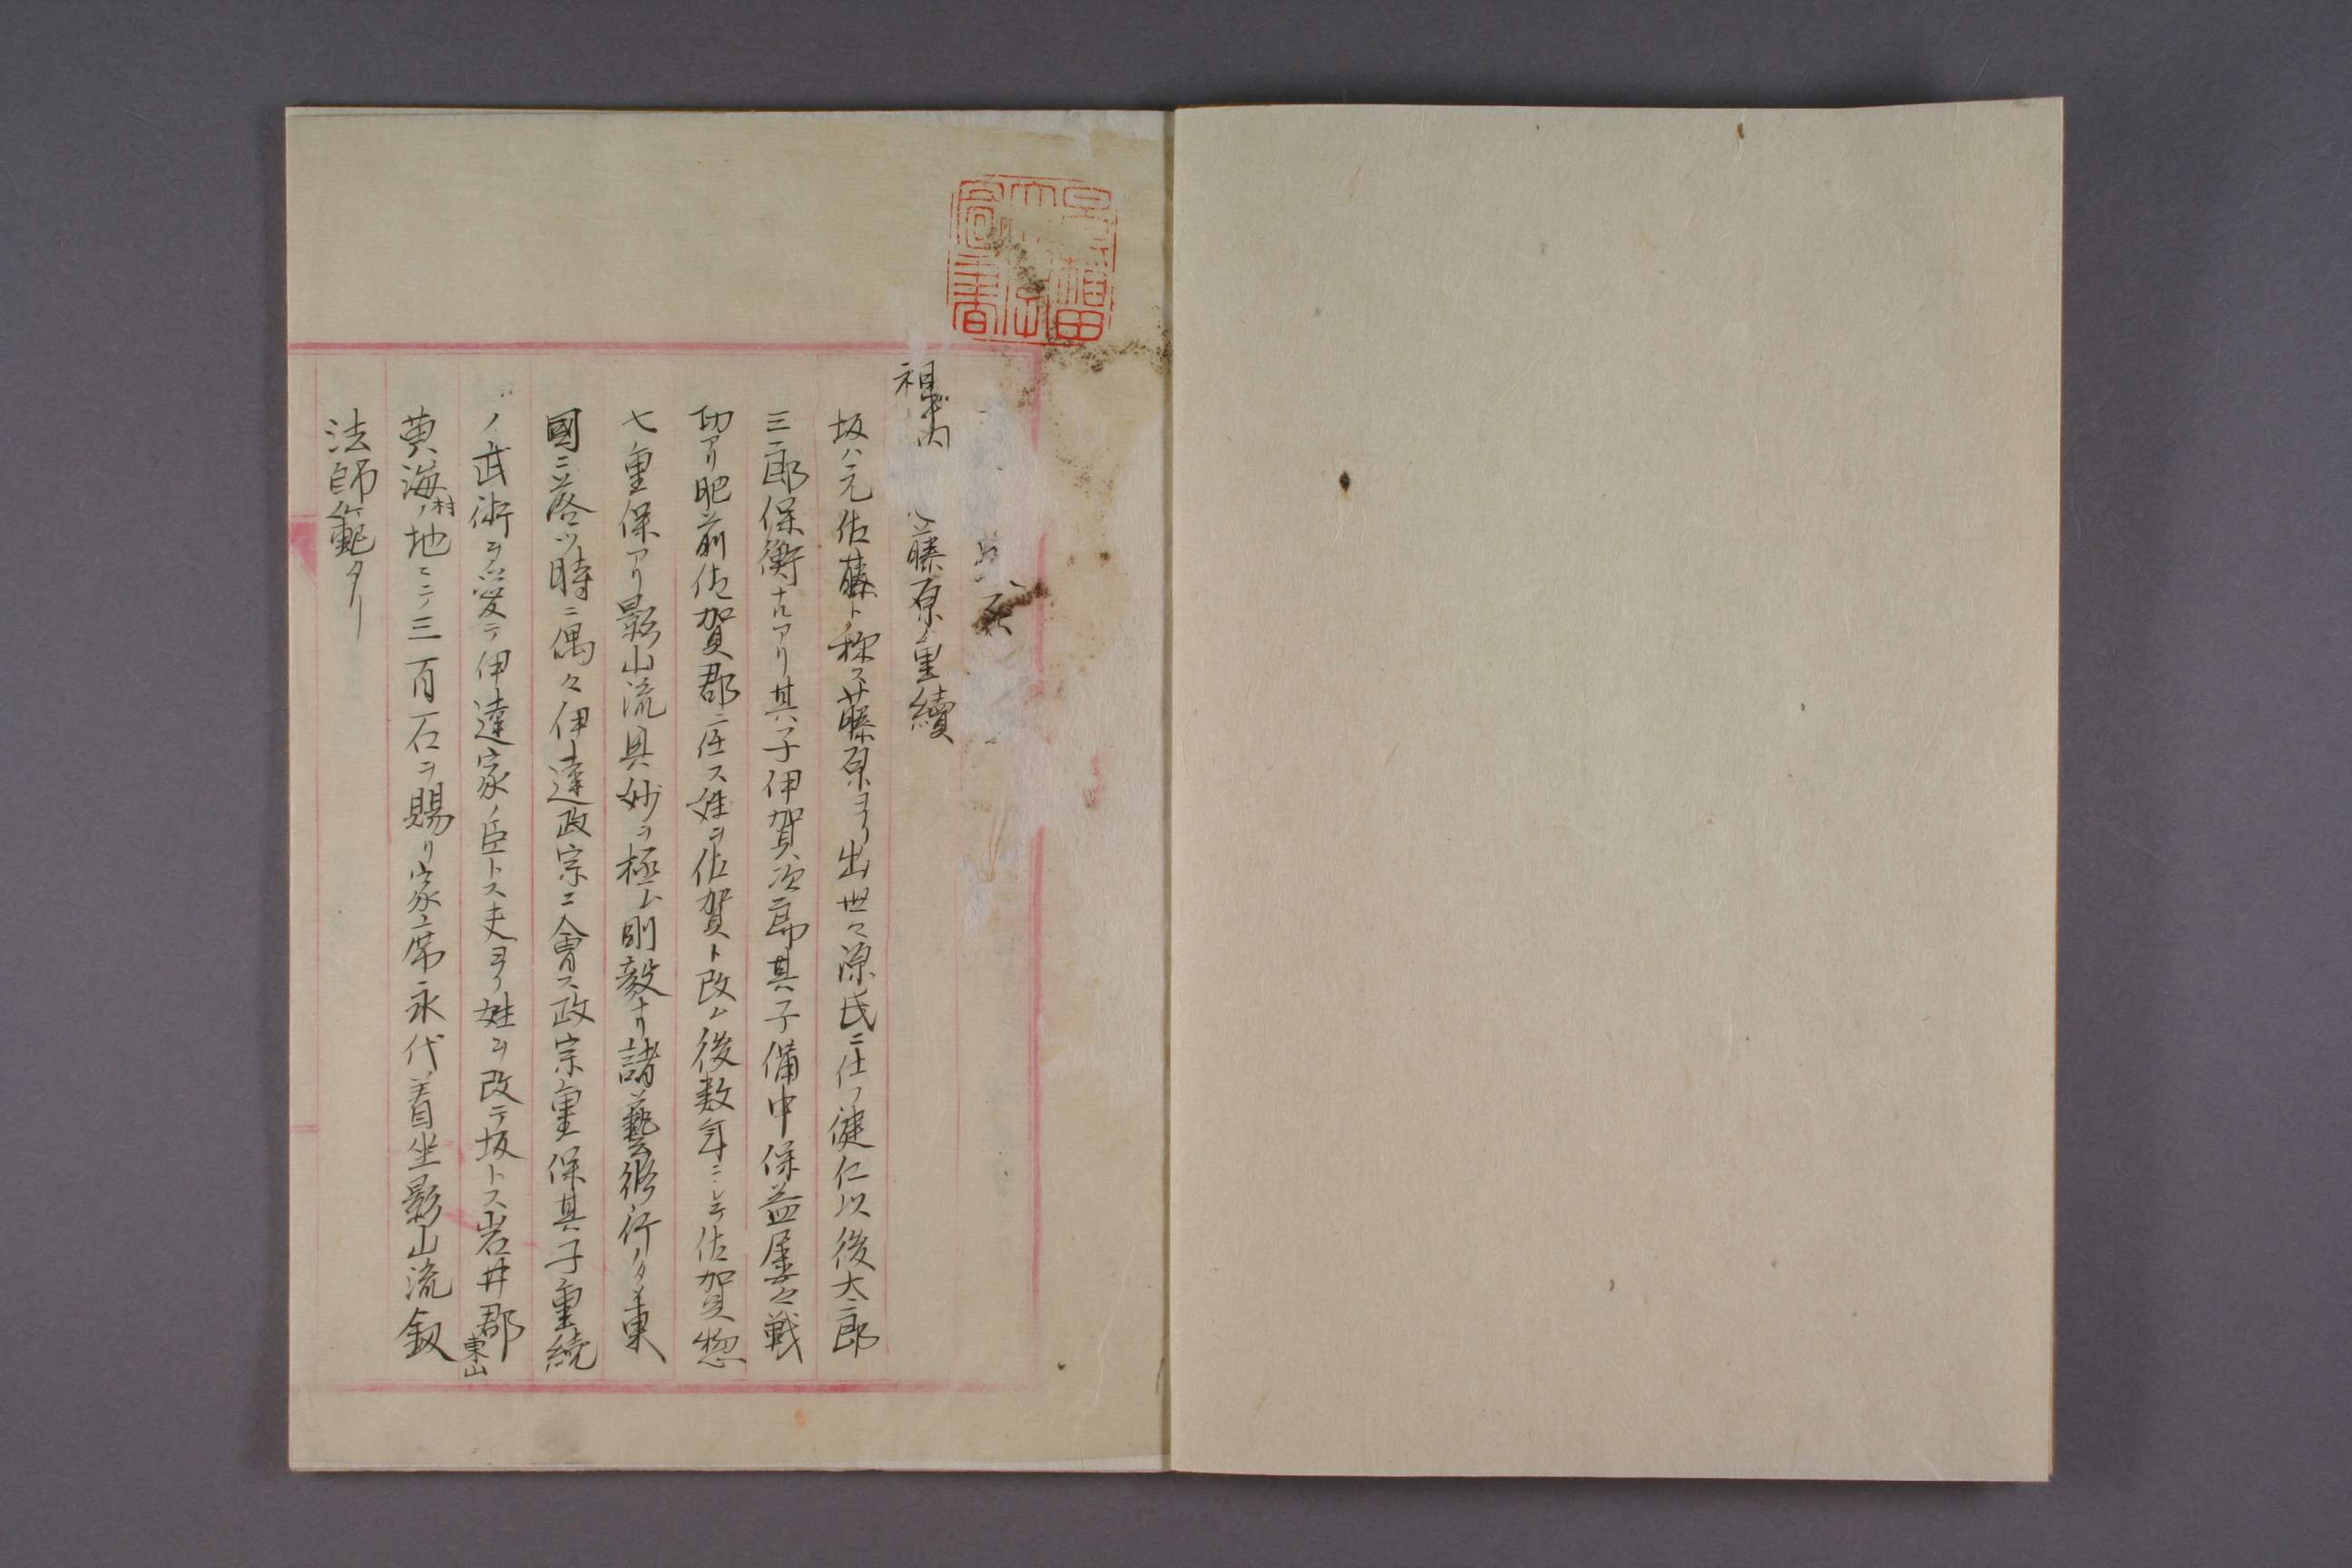 早稲田大学図書
祖
藤原ノ重續
坂ハ元佐藤ト称ス藤原ヨリ出世々源氏ニ仕フ健仁以後太郎
三郎保衡ナルアリ其子伊賀次郎其子備中保益屡々戦
功アリ肥前佐賀郡ニ任ス姓ヲ佐賀ト改ム後数年ニシテ佐賀惣
七重保アリ影山流具妙ヲ極ム剛毅ナリ諸藝修行ノタメ東
國ニ落ツ時ニ偶々伊達政宗ニ會ス政宗重保其子重続
ノ武術ヲ愛テ伊達家ノ臣トス夫ヨリ姓ヲ改テ坂トス岩井郡東山
黄海村ノ地ニテ三百石ヲ賜リ家席永代着坐影山流釼
法師範タリ